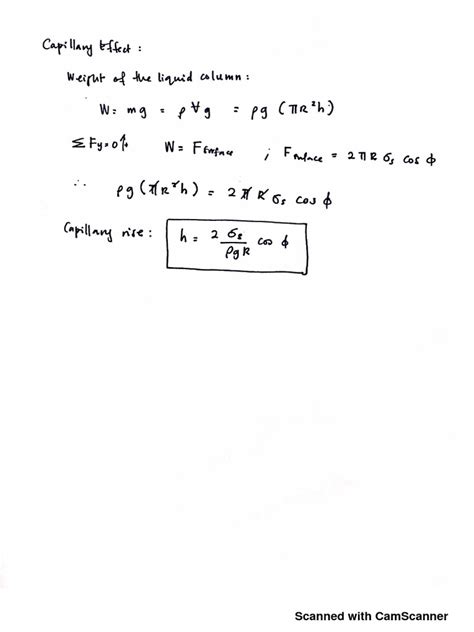 Capillary Effect :
Weight of the liquid column :
W = mg = ρVg = ρg (πR²h)
ΣFy=0 W = Fsurface ; Fsurface = 2πR σs cos ϕ
∴ ρg (πR²h) = 2πR σs cos ϕ
Capillary rise : h = 2 σs / ρgR cos ϕ
Scanned with CamScanner